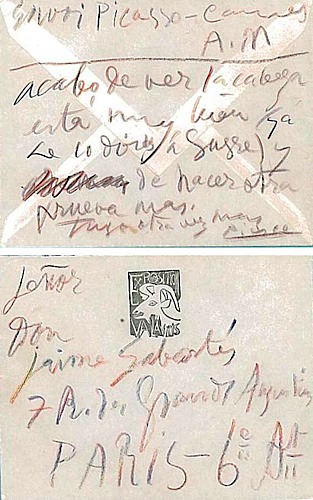 Envoi Picasso - Cannes
A.M
acabo de ver la cabeza
está muy bien (ya
se lo dirás a Susse) y
de hacer otra
prueba mas.
otra vez mas
Picasso
Señor
EXPOSITION
VALLAURIS
Don
Jaime Sabartés
7 R. des Grands Augustins
PARIS - 6e Art